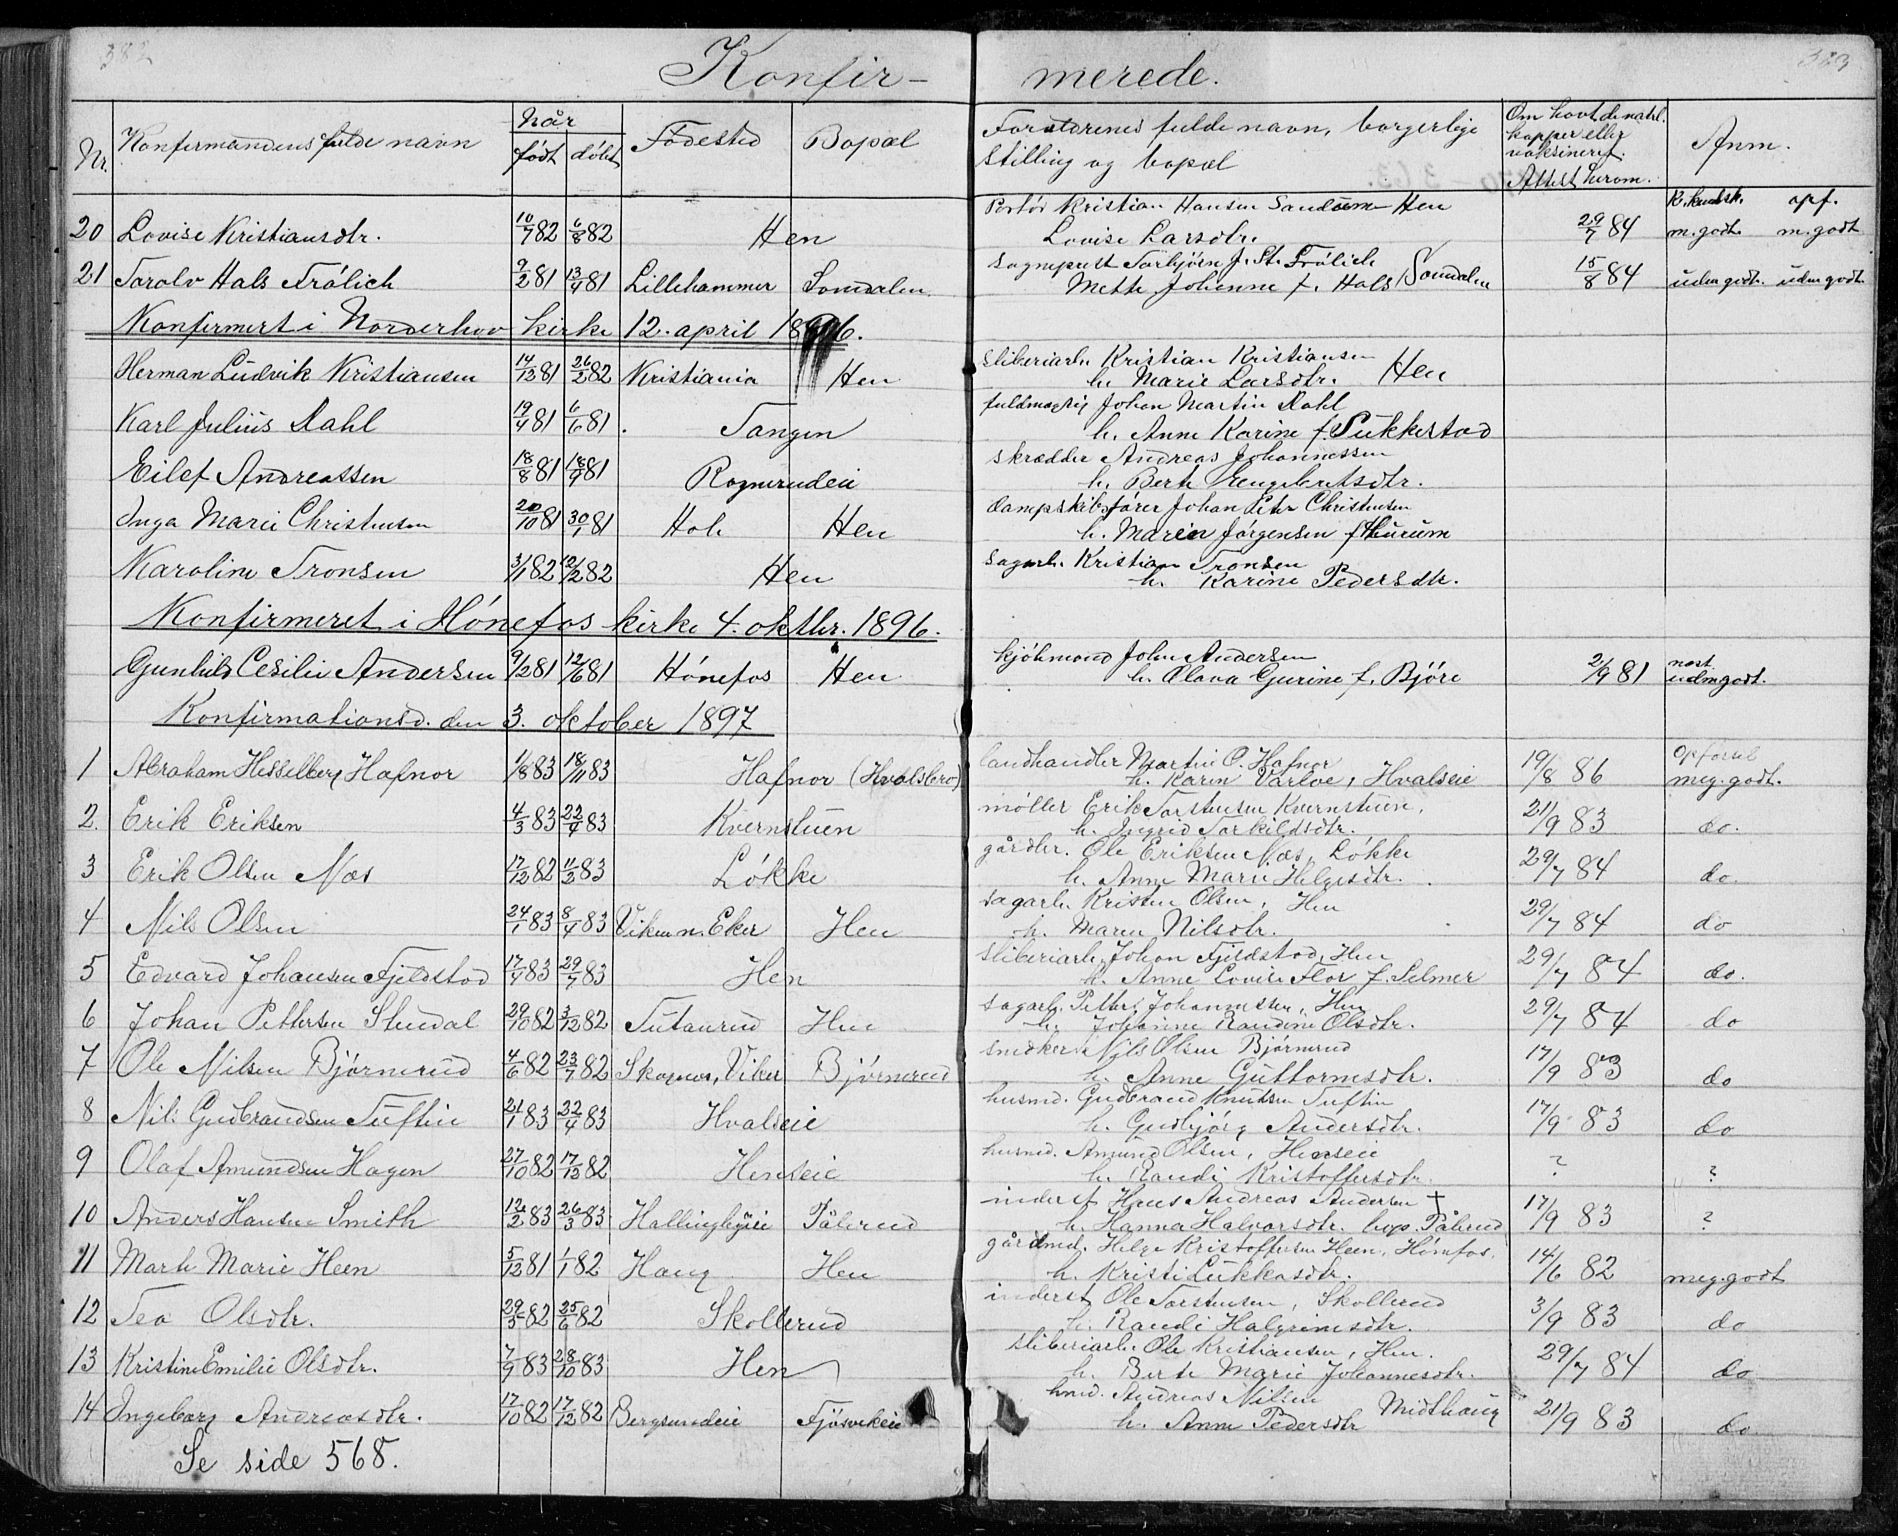 382
383
Konfir- merede.
Nr. Konfirmandens fulde navn når født døbt Fødested Bopæl Forældrenes fulde navn, borgerlige stilling og bopæl Om havt de natrl. kopper eller vaksineret. Attest herom. Anm.
K. kundsk. opf.
20 Lovise Kristiansdtr. 10/7 82 6/8 82 Hen Portør Kristian Hansen Sandum Hen
Lovise Larsdtr. 29/7 84 m. godt m. godt
21 Torolv Hals Frölich 9/2 81 13/4 81 Lillehammer Somdalen sogneprest Torbjørn J. St. Frölich
Mette Johanne f. Hals Somdalen 15/8 84 udm godt. udm godt.
Konfirmert i Norderhov kirke 12. april 1896.
Herman Ludvik Kristiansen 14/12 81 26/2 82 Kristiania Hen sliberiarb. Kristian Kristiansen
h. Marie Larsdtr. Hen
Karl Julius Dahl 19/4 81 6/6 81 Tangen fuldmægtig Johan Martin Dahl
h. Anne Karine f. Sukkestad
Eilef Andreassen 18/8 81 18/9 81 Rognerudeie skrædder Andreas Johannessen
h. Berte Engebretsdtr.
Inga Marie Christensen 20/10 81 30/1 81 Hole Hen dampskibsfører Johan Peter Christensen
h. Maren Jørgensen f. Hurum
Karoline Tronsen 3/1 82 12/2 82 Hen sagarb. Kristian Tronsen
h. Karine Pedersdtr.
Konfirmeret i Hønefos kirke 4. oktbr. 1896.
Gunhild Cesilie Andersen 9/2 81 12/6 81 Hønefos Hen kjøbmand John Andersen
h. Olava Gurine f. Björe 2/9 81 næst. udm godt.
Konfirmationsd. den 3. oktober 1897
1 Abraham Hesselberg Hafnor 1/8 83 18/11 83 Hafnor (Hvalsbro) landhandler Martin O. Hafnor
h. Karen Varloe, Hvalseie 19/8 86 opförsel meg. godt.
2. Erik Eriksen 4/3 83 22/4 83 Kvernstuen møller Erik Torstensen Kvernstuen,
h. Ingrid Torkildsdtr. 21/9 83 do.
3 Erik Olsen Næs 17/12 82 11/2 83 Løkke gårdbr. Ole Eriksen Næs, Løkke
h. Anne Marie Helgesdtr. 29/7 84 do.
4 Nils Olsen 24/1 83 8/4 83 Viken n. Eker Hen sagarb. Kristen Olsen, Hen
h. Maren Nilsdtr. 29/7 84 do
5 Edvard Johansen Fjeldstad 17/4 83 29/7 83 Hen sliberiarb. Johan Fjeldstad, Hen
h. Anne Lovise Flor f. Selmer 29/7 84 do.
6 Johan Pettersen Stendal 29/10 82 3/12 82 Tutanrud Hen sagarb. Petter Johannessen, Hen
h. Johanne Randine Olsdtr. 29/7 84 do
7 Ole Nilsen Bjørnerud 4/6 82 23/7 82 Skognes, Viker Bjørnerud snedker Nils Olsen Bjørnerud
h. Anne Guttormsdtr. 17/9 83 do
8 Nils Gudbrandsen Tuftin 21/1 83 22/4 83 Hvalseie husmd. Gudbrand Knutsen Tuftin
h. Gudbjörg Andersdtr. 17/9 83 do
9 Olaf Amundsen Hagen 27/10 82 17/12 82 Henseie husmd. Amund Olsen, Henseie
h. Randi Kristoffersdtr. ? ?
10 Anders Hansen Smith 12/2 83 26/3 83 Hallingbyeie Pålerud inderst Hans Andreas Andersen †
h. Hanna Halvorsdtr. bop. Pålerud 17/9 83 ?
11 Marte Marie Heen 5/12 81 1/1 82 Haug Hen gårdmd. Helge Kristoffersen Heen, Hønefos.
h. Kristi Lukkasdtr. 14/6 82 meg. godt
12 Tea Olsdtr. 29/5 82 25/6 82 Skollerud inderst Ole Torstensen, Skollerud
h. Randi Halgrimsdtr. 3/9 83 do
13 Kristine Emilie Olsdtr. 7/9 83 28/10 83 Hen sliberiarb. Ole Kristiansen, Hen.
h. Berte Marie Johannesdtr. 29/7 84 do
14 Ingeborg Andreasdtr. 17/10 82 17/12 82 Bergsundeie Fjösvikeie hmd. Andreas Nilsen
h. Anne Pedersdtr Midthaug 21/9 83 do.
Se side 568.